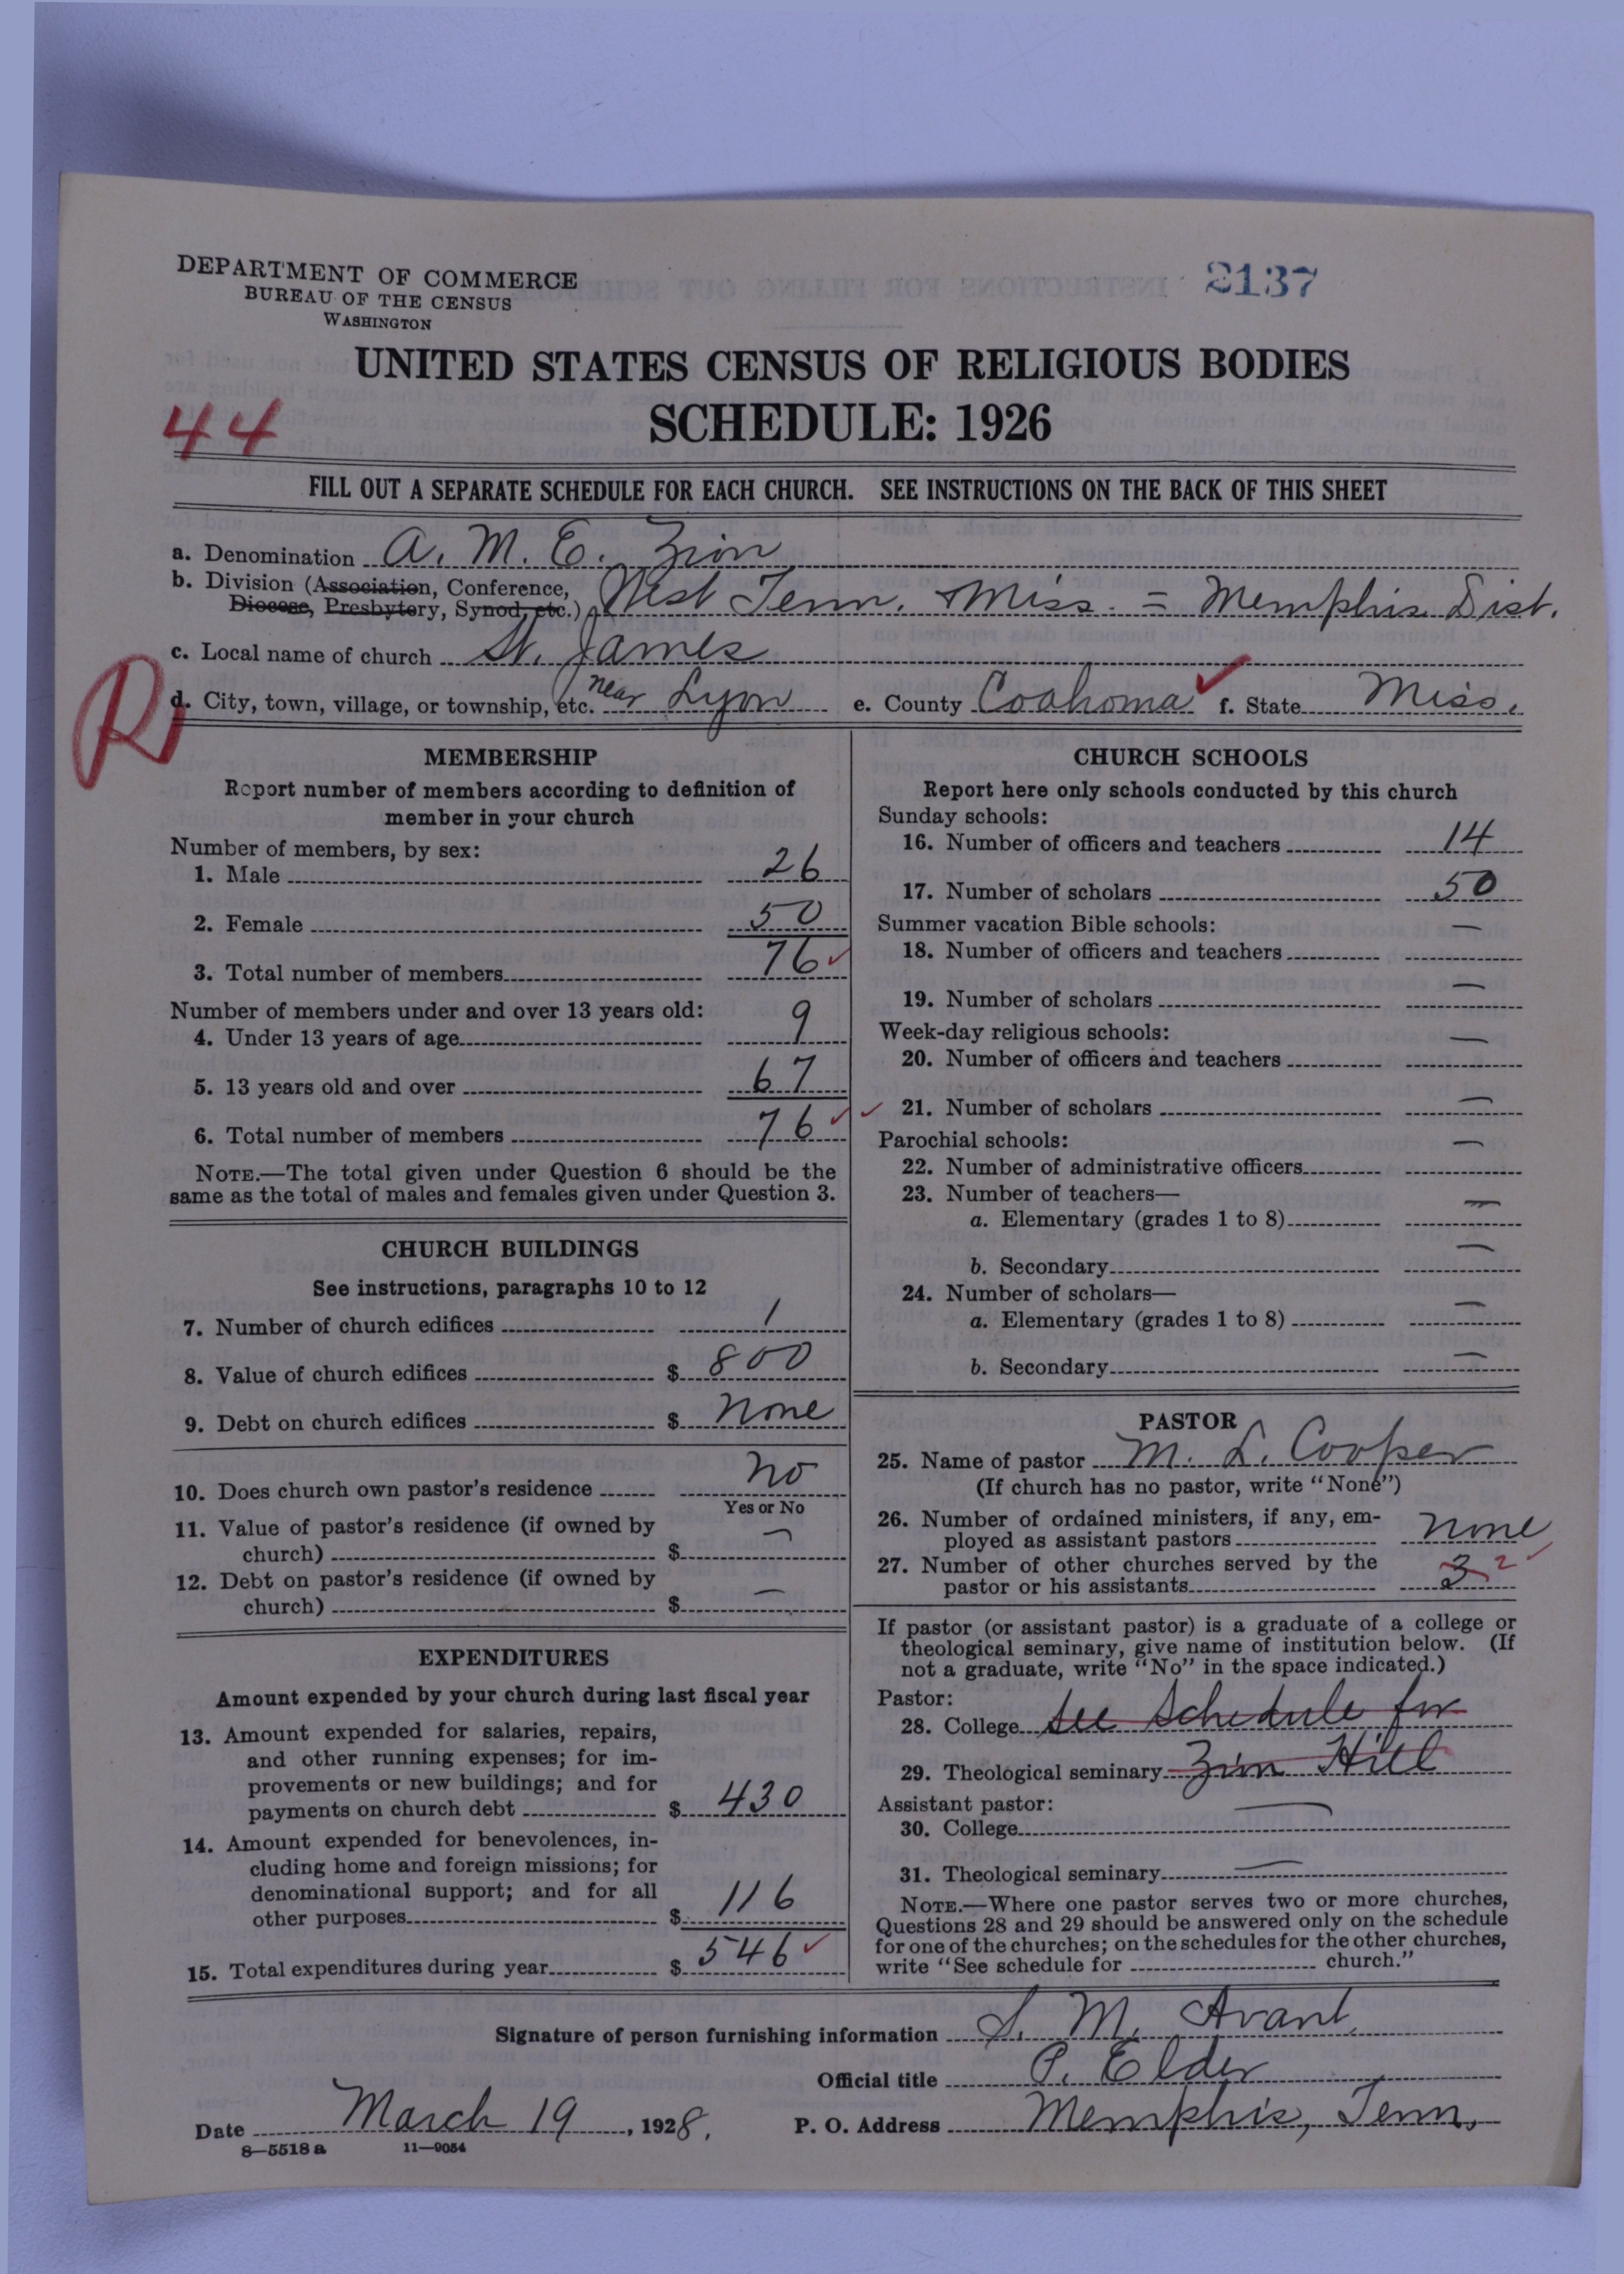 DEPARTMENT OF COMMERCE
BUREAU OF THE CENSUS
WASHINGTON
2137
UNITED STATES CENSUS OF RELIGIOUS BODIES
SCHEDULE: 1926
44
FILL OUT A SEPARATE SCHEDULE FOR EACH CHURCH. SEE INSTRUCTIONS ON THE BACK OF THIS SHEET
a. Denomination A. M. E. Zion
b. Division (Association, Conference, Diocese, Presbytery, Synod, etc.) West Tenn. + Miss. = Memphis Dist.
c. Local name of church St. James
R
d. City, town, village, or township, etc. near Lyon e. County Coahoma f. State Miss.
MEMBERSHIP
Report number of members according to definition of
member in your church
Number of members, by sex:
1. Male 26
2. Female 50
3. Total number of members 76
Number of members under and over 13 years old:
4. Under 13 years of age 9
5. 13 years old and over 67
6. Total number of members 76
NOTE.—The total given under Question 6 should be the
same as the total of males and females given under Question 3.
CHURCH BUILDINGS
See instructions, paragraphs 10 to 12
7. Number of church edifices 1
8. Value of church edifices $ 800
9. Debt on church edifices $ None
10. Does church own pastor's residence No
Yes or No
11. Value of pastor's residence (if owned by
church) $ —
12. Debt on pastor's residence (if owned by
church) $ —
EXPENDITURES
Amount expended by your church during last fiscal year
13. Amount expended for salaries, repairs,
and other running expenses; for im-
provements or new buildings; and for
payments on church debt $ 430
14. Amount expended for benevolences, in-
cluding home and foreign missions; for
denominational support; and for all
other purposes $ 116
15. Total expenditures during year $ 546
CHURCH SCHOOLS
Report here only schools conducted by this church
Sunday schools:
16. Number of officers and teachers 14
17. Number of scholars 50
Summer vacation Bible schools:
18. Number of officers and teachers —
19. Number of scholars —
Week-day religious schools:
20. Number of officers and teachers —
21. Number of scholars —
Parochial schools:
22. Number of administrative officers —
23. Number of teachers—
a. Elementary (grades 1 to 8) —
b. Secondary —
24. Number of scholars—
a. Elementary (grades 1 to 8) —
b. Secondary —
PASTOR
25. Name of pastor M. L. Cooper
(If church has no pastor, write "None")
26. Number of ordained ministers, if any, em-
ployed as assistant pastors None
27. Number of other churches served by the
pastor or his assistants 3 2
If pastor (or assistant pastor) is a graduate of a college or
theological seminary, give name of institution below. (If
not a graduate, write "No" in the space indicated.)
Pastor:
28. College See Schedule for
29. Theological seminary Zion Hill
Assistant pastor:
30. College —
31. Theological seminary —
NOTE.—Where one pastor serves two or more churches,
Questions 28 and 29 should be answered only on the schedule
for one of the churches; on the schedules for the other churches,
write "See schedule for church."
Signature of person furnishing information S. M. Avant
Official title P. Elder
Date March 19, 1928. P. O. Address Memphis, Tenn.
8—5518 a 11—9054